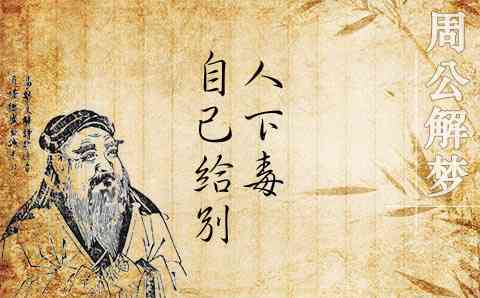 周公解梦
自己给别
人下毒